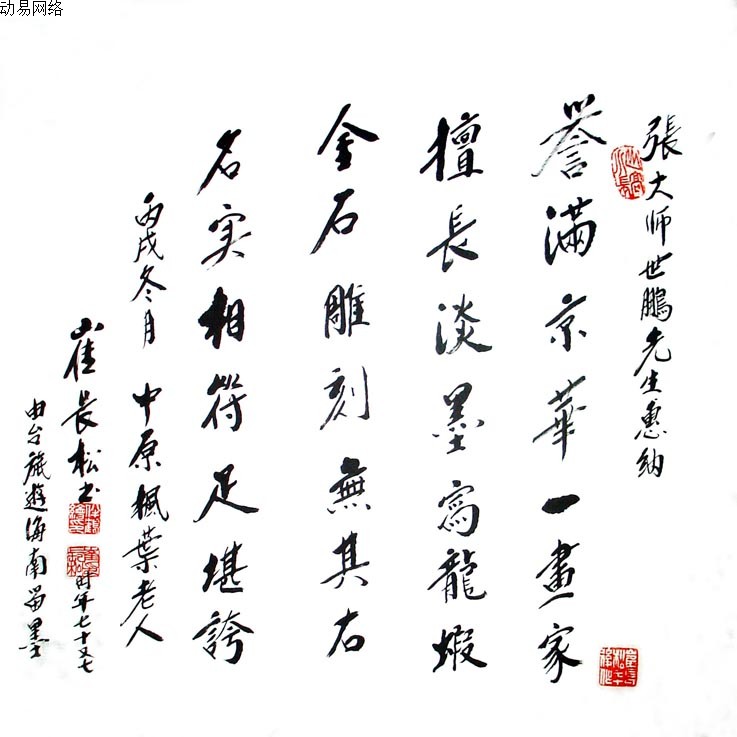 动易网络
張大师世鵬先生惠纳
譽滿京華一畫家
擅長淡墨寫龍蝦
金石雕刻無其右
名实相符足堪誇
丙戌冬月 中原楓葉老人
崔長松书 时年七十又七
由台旅遊海南留墨